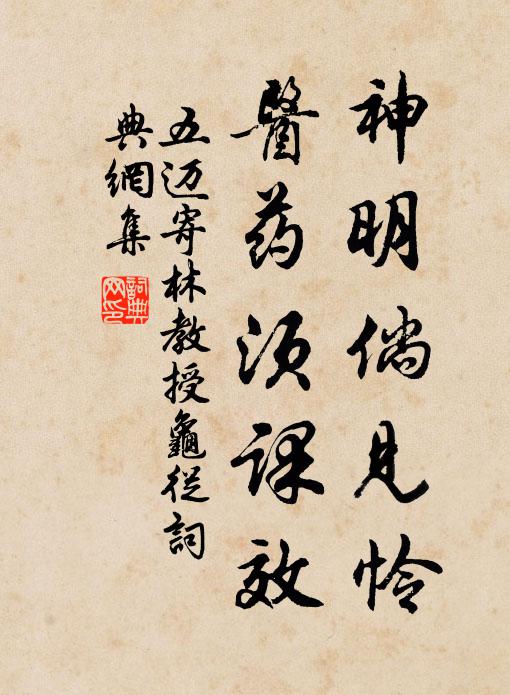 神明倘见怜
醫药须课效
五迈寄林教授龜從詞
典網集
詞典网印